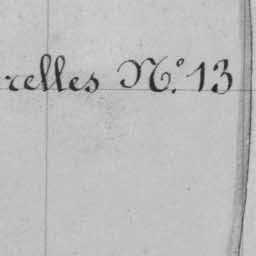 relles N.° 13